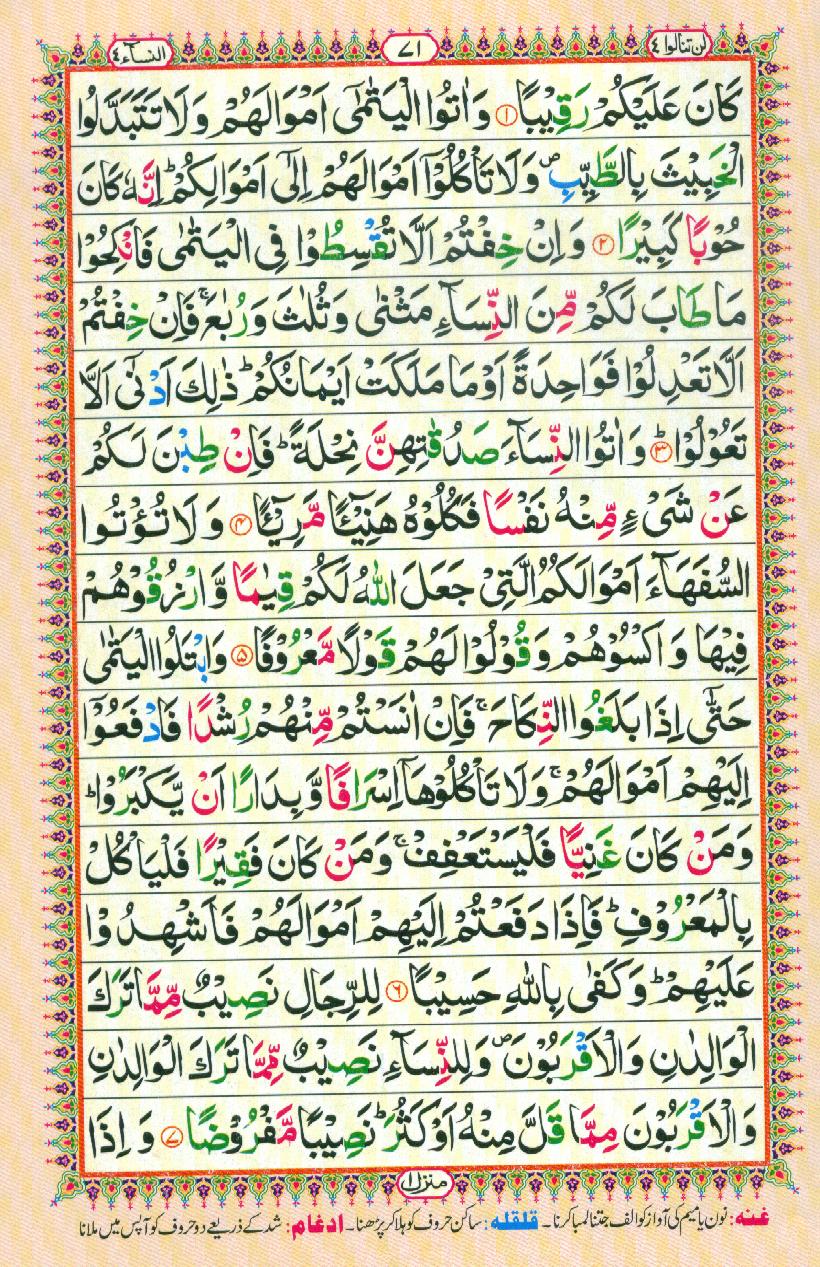 لن تنالوا ٤
٧١
النسآء ٤
كَانَ عَلَيْكُمْ رَقِيْبًا ۝١ وَاٰتُوا الْيَتٰمٰٓى اَمْوَالَهُمْ وَلَا تَتَبَدَّلُوا
الْخَبِيْثَ بِالطَّيِّبِ ۠ وَلَا تَاْكُلُوْٓا اَمْوَالَهُمْ اِلٰٓى اَمْوَالِكُمْ ؕ اِنَّهٗ كَانَ
حُوْبًا كَبِيْرًا ۝٢ وَاِنْ خِفْتُمْ اَلَّا تُقْسِطُوْا فِى الْيَتٰمٰى فَانْكِحُوْا
مَا طَابَ لَكُمْ مِّنَ النِّسَآءِ مَثْنٰى وَثُلٰثَ وَرُبٰعَ ۚ فَاِنْ خِفْتُمْ
اَلَّا تَعْدِلُوْا فَوَاحِدَةً اَوْ مَا مَلَكَتْ اَيْمَانُكُمْ ؕ ذٰلِكَ اَدْنٰٓى اَلَّا
تَعُوْلُوْا ؕ ۝٣ وَاٰتُوا النِّسَآءَ صَدُقٰتِهِنَّ نِحْلَةً ؕ فَاِنْ طِبْنَ لَكُمْ
عَنْ شَىْءٍ مِّنْهُ نَفْسًا فَكُلُوْهُ هَنِيْٓئًا مَّرِيْٓئًا ۝٤ وَلَا تُؤْتُوا
السُّفَهَآءَ اَمْوَالَكُمُ الَّتِىْ جَعَلَ اللّٰهُ لَكُمْ قِيٰمًا وَّارْزُقُوْهُمْ
فِيْهَا وَاكْسُوْهُمْ وَقُوْلُوْا لَهُمْ قَوْلًا مَّعْرُوْفًا ۝٥ وَابْتَلُوا الْيَتٰمٰى
حَتّٰٓى اِذَا بَلَغُوا النِّكَاحَ ۚ فَاِنْ اٰنَسْتُمْ مِّنْهُمْ رُشْدًا فَادْفَعُوْٓا
اِلَيْهِمْ اَمْوَالَهُمْ ۚ وَلَا تَاْكُلُوْهَآ اِسْرَافًا وَّبِدَارًا اَنْ يَّكْبَرُوْا ؕ
وَمَنْ كَانَ غَنِيًّا فَلْيَسْتَعْفِفْ ۚ وَمَنْ كَانَ فَقِيْرًا فَلْيَاْكُلْ
بِالْمَعْرُوْفِ ؕ فَاِذَا دَفَعْتُمْ اِلَيْهِمْ اَمْوَالَهُمْ فَاَشْهِدُوْا
عَلَيْهِمْ ؕ وَكَفٰى بِاللّٰهِ حَسِيْبًا ۝٦ لِلرِّجَالِ نَصِيْبٌ مِّمَّا تَرَكَ
الْوَالِدٰنِ وَالْاَقْرَبُوْنَ ۠ وَلِلنِّسَآءِ نَصِيْبٌ مِّمَّا تَرَكَ الْوَالِدٰنِ
وَالْاَقْرَبُوْنَ مِمَّا قَلَّ مِنْهُ اَوْ كَثُرَ ؕ نَصِيْبًا مَّفْرُوْضًا ۝٧ وَاِذَا
منزل ١
غنه: نون یا میم کی آواز کو الف جتنا لمبا کرنا۔ قلقله: ساکن حروف کو ہلا کر پڑھنا۔ ادغام: شد کے ذریعے دو حروف کو آپس میں ملانا